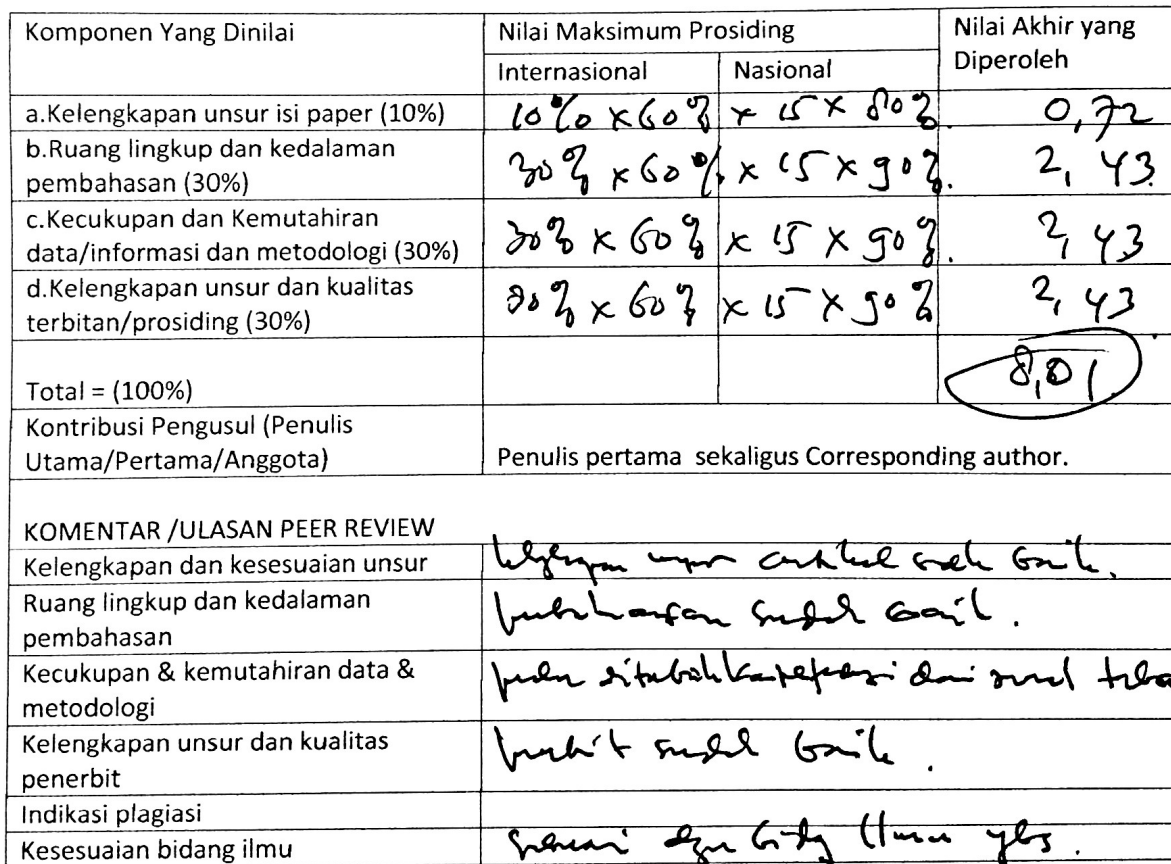 Komponen Yang Dinilai
Nilai Maksimum Prosiding
Nilai Akhir yang
Diperoleh
Internasional
Nasional
a.Kelengkapan unsur isi paper (10%)
10% x 60% x 15 x 80%
0,72
b.Ruang lingkup dan kedalaman
pembahasan (30%)
30% x 60% x 15 x 90%.
2,43
c.Kecukupan dan Kemutahiran
data/informasi dan metodologi (30%)
30% x 60% x 15 x 90%.
2,43
d.Kelengkapan unsur dan kualitas
terbitan/prosiding (30%)
30% x 60% x 15 x 90%
2,43
Total = (100%)
8,01
Kontribusi Pengusul (Penulis
Utama/Pertama/Anggota)
Penulis pertama sekaligus Corresponding author.
KOMENTAR /ULASAN PEER REVIEW
Kelengkapan dan kesesuaian unsur
baik.
Ruang lingkup dan kedalaman
pembahasan
pembahasan sudah baik.
Kecukupan & kemutahiran data &
metodologi
dari
Kelengkapan unsur dan kualitas
penerbit
sudah baik.
Indikasi plagiasi
Kesesuaian bidang ilmu
sesuai dgn bidang ilmu ybs.